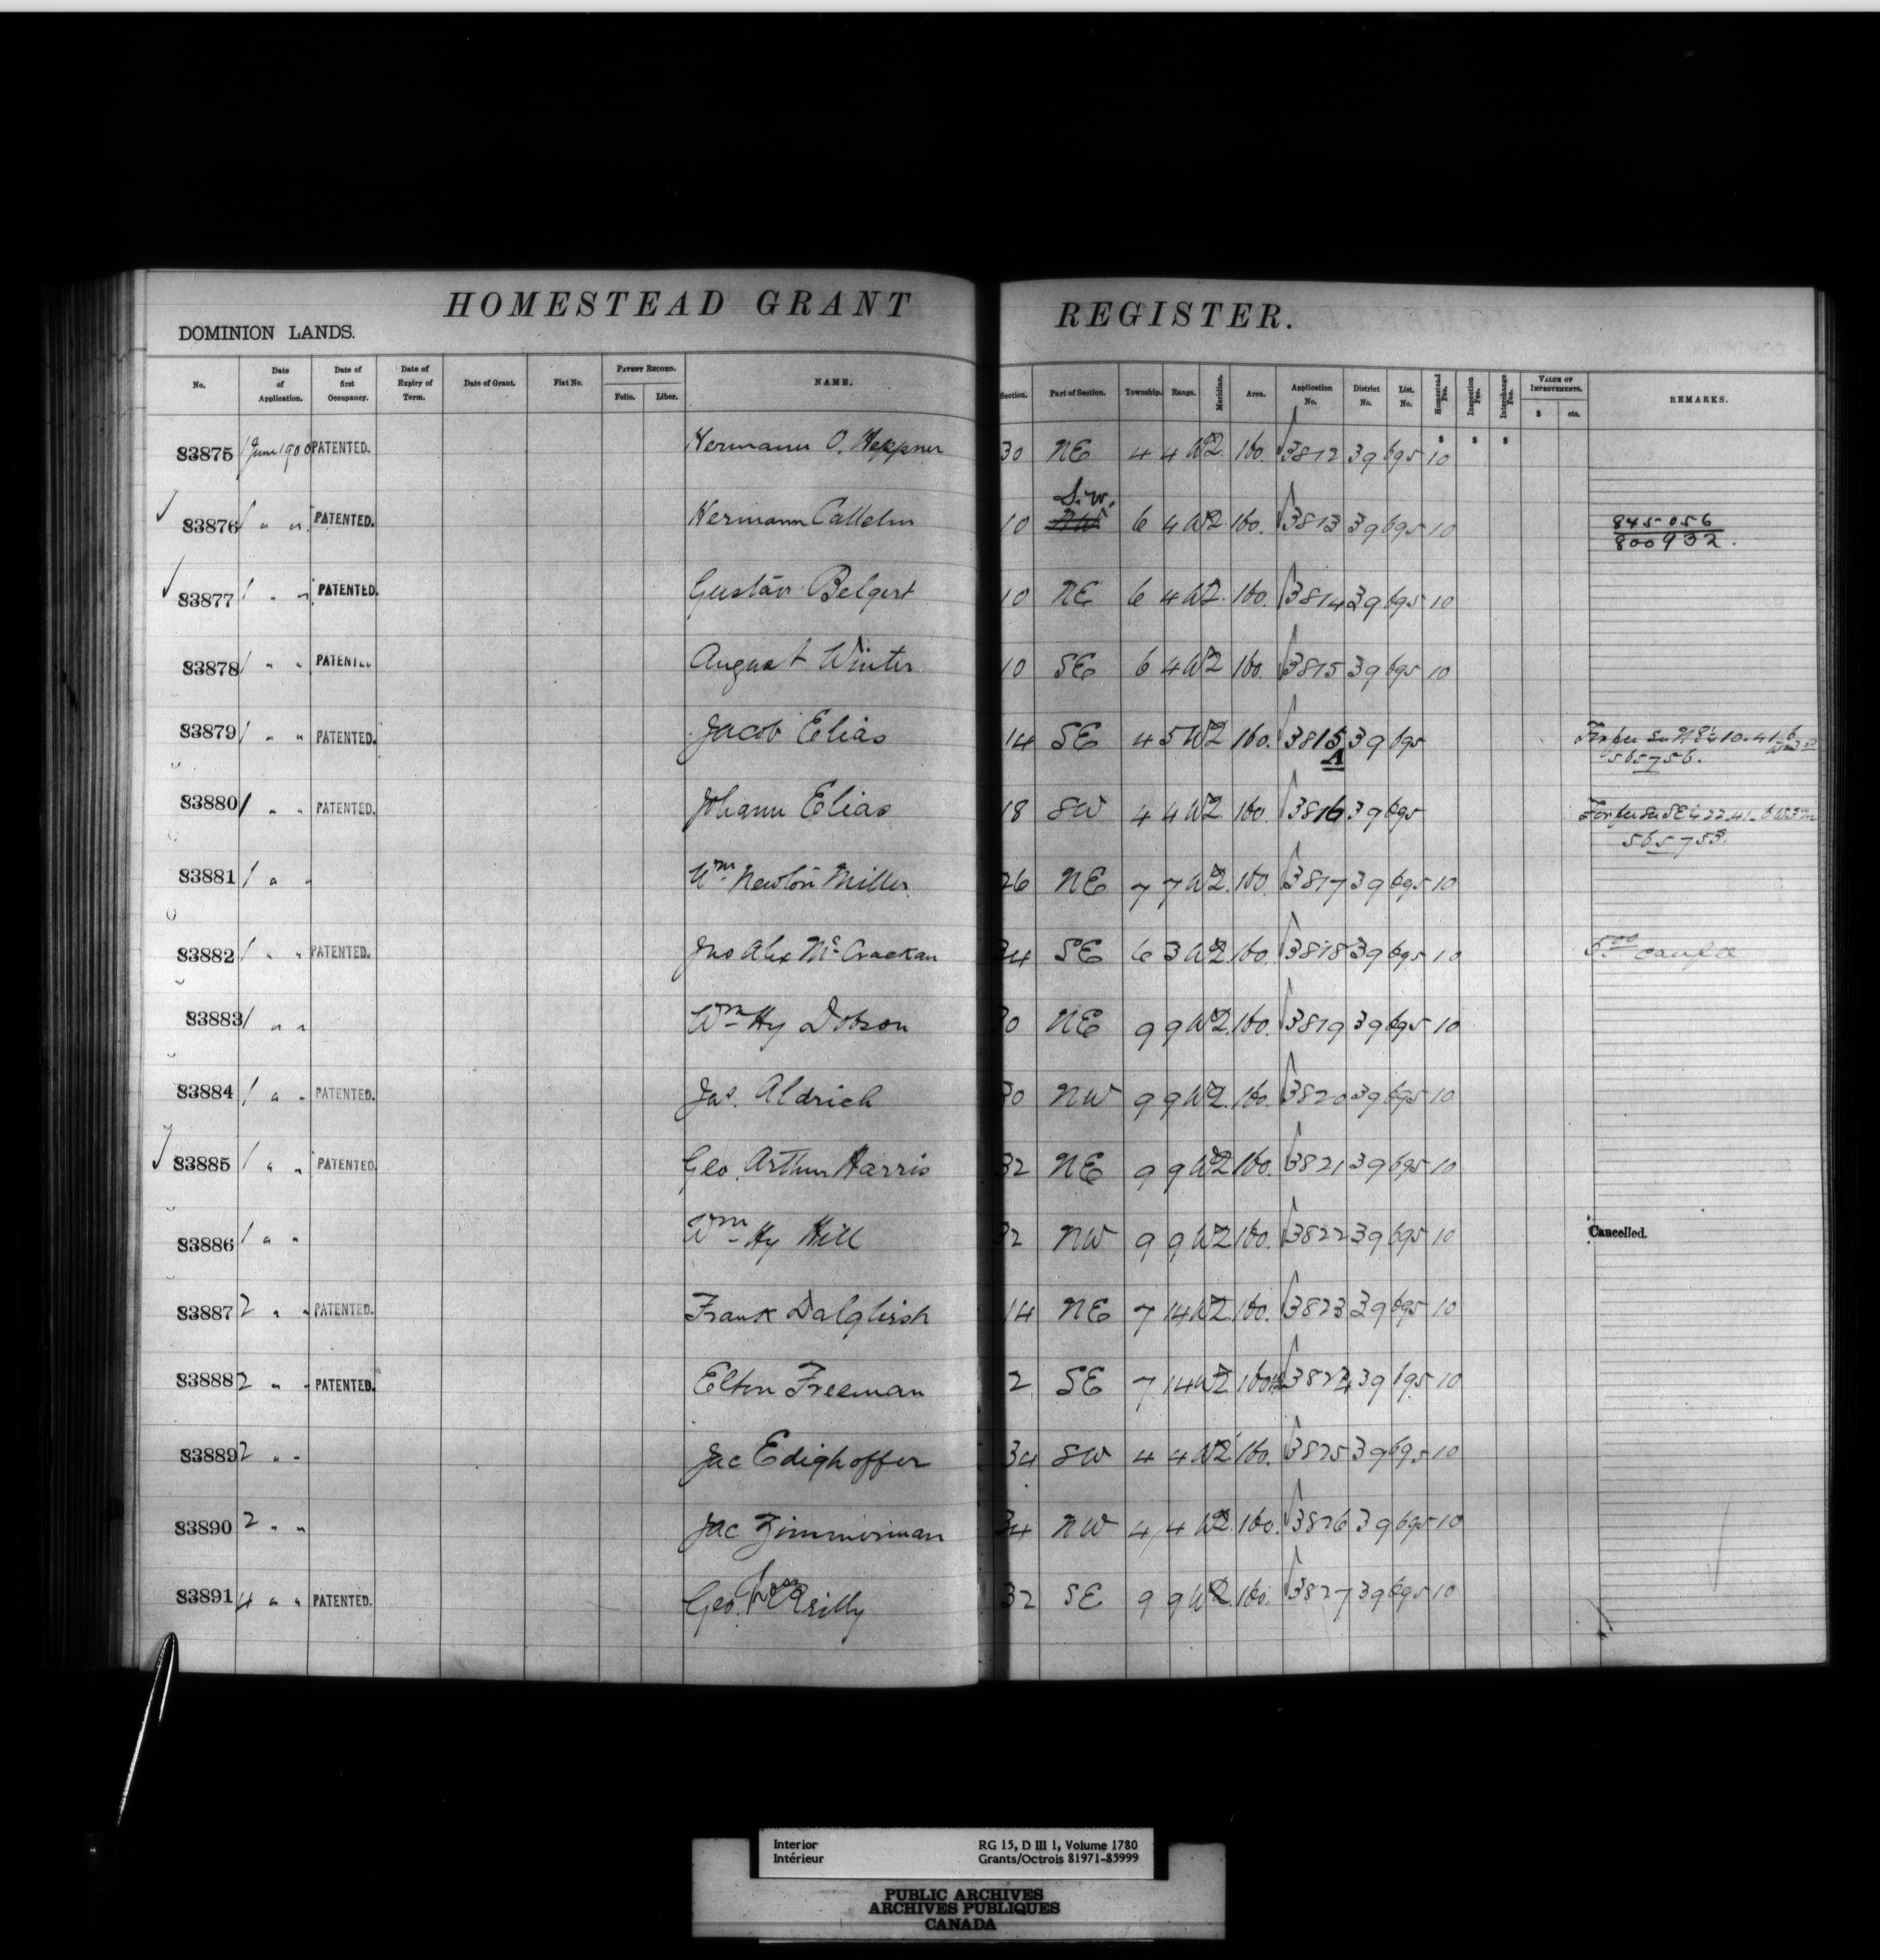 HOMESTEAD GRANT REGISTER.
DOMINION LANDS.
No. Date of Application. Date of first Occupancy. Date of Expiry of Term. Date of Grant. Fiat No. PATENT RECORD. Folio. Liber. NAME. Section. Part of Section. Township. Range. Meridian. Area. Application No. District No. List. No. Homestead Fee. Inspection Fee. Interchange Fee. VALUE OF IMPROVEMENTS. $ cts. REMARKS.
$ $ $
83875 1 June 1900 PATENTED. Hermann O. Heppner 30 NE 4 4 W2 160. 3812 39 695 10
S.W.
83876 1 " " PATENTED. Hermann 10 NW 6 4 W2 160. 3813 39 695 10 845056
800932.
83877 1 " " PATENTED. Gustav Belgert 10 NE 6 4 W2. 160. 3814 39 695 10
83878 1 " " PATENTED August Winter 10 SE 6 4 W2 160. 3815 39 695 10
83879 1 " " PATENTED. Jacob Elias 14 SE 4 5 W2 160. 3815 39 695
A 565756.
83880 1 " " PATENTED. Johann Elias 18 SW 4 4 W2 160. 3816 39 695
565753.
83881 1 " " Wm Newton Miller 26 NE 7 7 W2. 160. 3817 39 695 10
83882 1 " " PATENTED. Jno Alex McCrackan 34 SE 6 3 W2. 160. 3818 39 695 10 5.00
83883 1 " " Wm Hy Dobson 30 NE 9 9 W2. 160. 3819 39 695 10
83884 1 " " PATENTED. Jas. Aldrich 30 NW 9 9 W2. 160. 3820 39 695 10
83885 1 " " PATENTED. Geo. Arthur Harris 32 NE 9 9 W2 160. 3821 39 695 10
83886 1 " " Wm Hy Hill 32 NW 9 9 W2 160. 3822 39 695 10 Cancelled.
83887 2 " " PATENTED. Frank Dalgliesh 14 NE 7 14 W2 160. 3823 39 695 10
83888 2 " " PATENTED. Elton Freeman 2 SE 7 14 W2 160 3824 39 695 10
83889 2 " " Jac Edighoffer 34 SW 4 4 W2 160. 3825 39 695 10
83890 2 " " Jac Zimmerman 34 NW 4 4 W2. 160. 3826 39 695 10
83891 4 " " PATENTED. Geo. Reilly 32 SE 9 9 W2. 160. 3827 39 695 10
Interior RG 15, D III 1, Volume 1780
Intérieur Grants/Octrois 81971-85999
PUBLIC ARCHIVES
ARCHIVES PUBLIQUES
CANADA